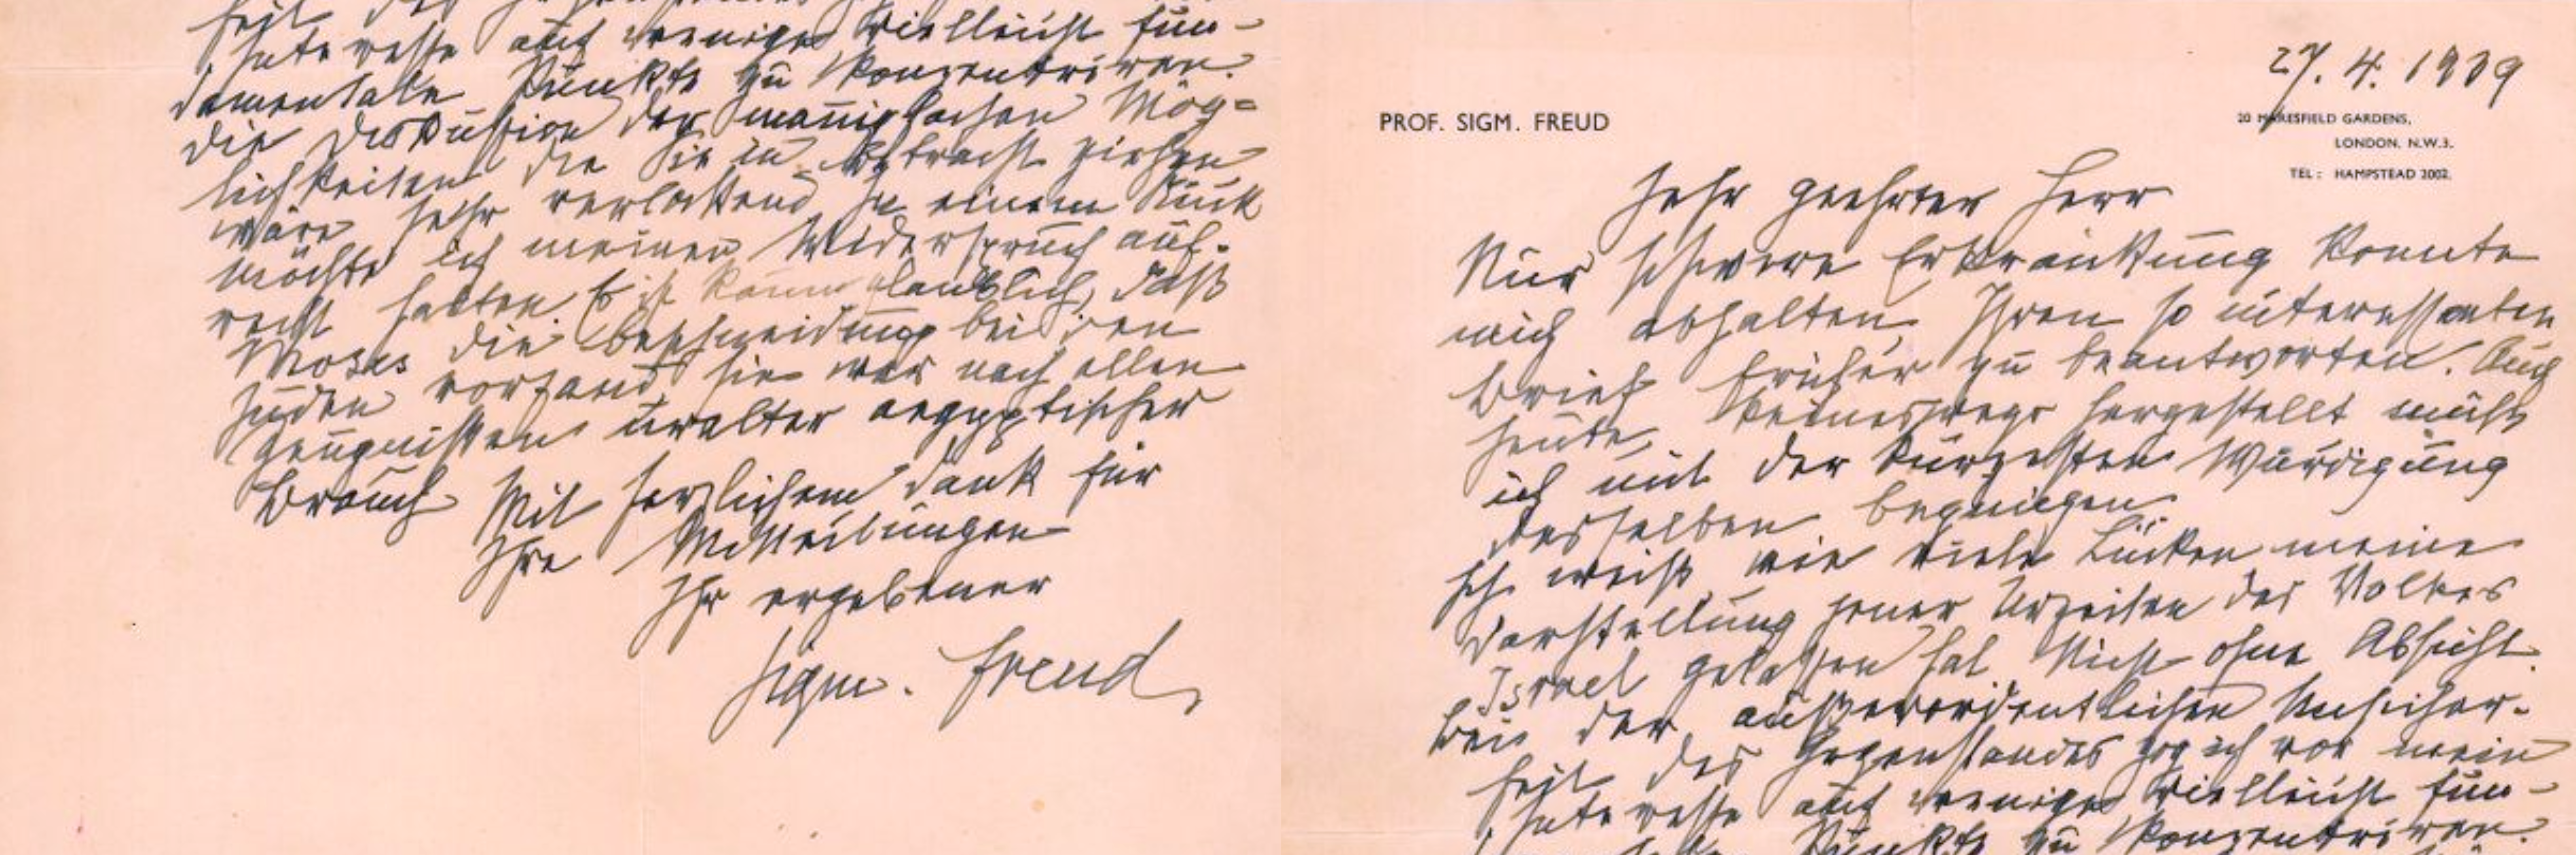 27. 4. 1939
PROF. SIGM. FREUD
20 MARESFIELD GARDENS,
LONDON. N.W.3.
TEL: HAMPSTEAD 2002.
Sehr geehrter Herr
Nur schwere Erkrankung konnte
mich abhalten Ihren so interessanten
Brief früher zu beantworten. Auch
heute keineswegs hergestellt muß
ich mit der kürzesten Würdigung
desselben begnügen
Ich weiß wie viele Lücken meine
Darstellung jener Urzeiten des Volkes
Israel gelassen hat. Nicht ohne Absicht.
Bei der außerordentlichen Unsicher-
heit des Gegenstandes zog ich vor mein
Interesse auf wenige vielleicht fun-
Punkte zu konzentriren.
heit des
Interesse auf wenige vielleicht fun-
damentale Punkte zu konzentriren.
Die Diskussion der mannigfachen Mög=
lichkeiten die Sie in Betracht ziehen
wäre sehr verlockend In einem Stück
möchte ich meinen Widerspruch auf-
recht halten. Es ist kaum glaublich, daß
Moses die Beschneidung bei den
Juden vorfand sie war nach allen
Zeugnissen uralter aegyptischer
Brauch Mit herzlichem Dank für
Ihre Mitteilungen
Ihr ergebener
Sigm. Freud